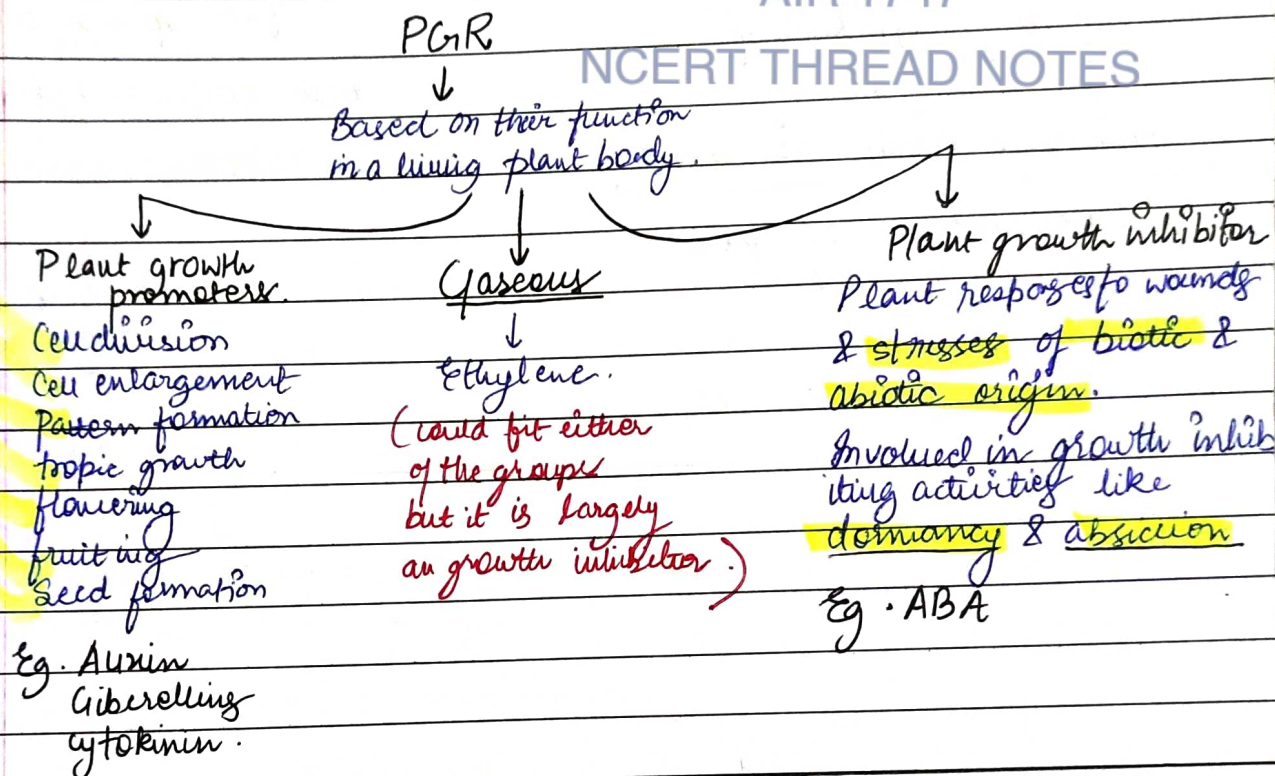 AIR 1717
NCERT THREAD NOTES
PGR
Based on their function
in a living plant body.
Plant growth
promoters.
Cell division
Cell enlargement
Pattern formation
tropic growth
flowering
fruiting
Seed formation
Eg. Auxin
Giberellins
cytokinin.
Gaseous
Ethylene.
(could fit either
of the groups
but it is largely
an growth inhibitor.)
Plant growth inhibitor
Plant responses to wounds
& stresses of biotic &
abiotic origin.
Involved in growth inhib
iting activities like
dormancy & abscission
Eg. ABA